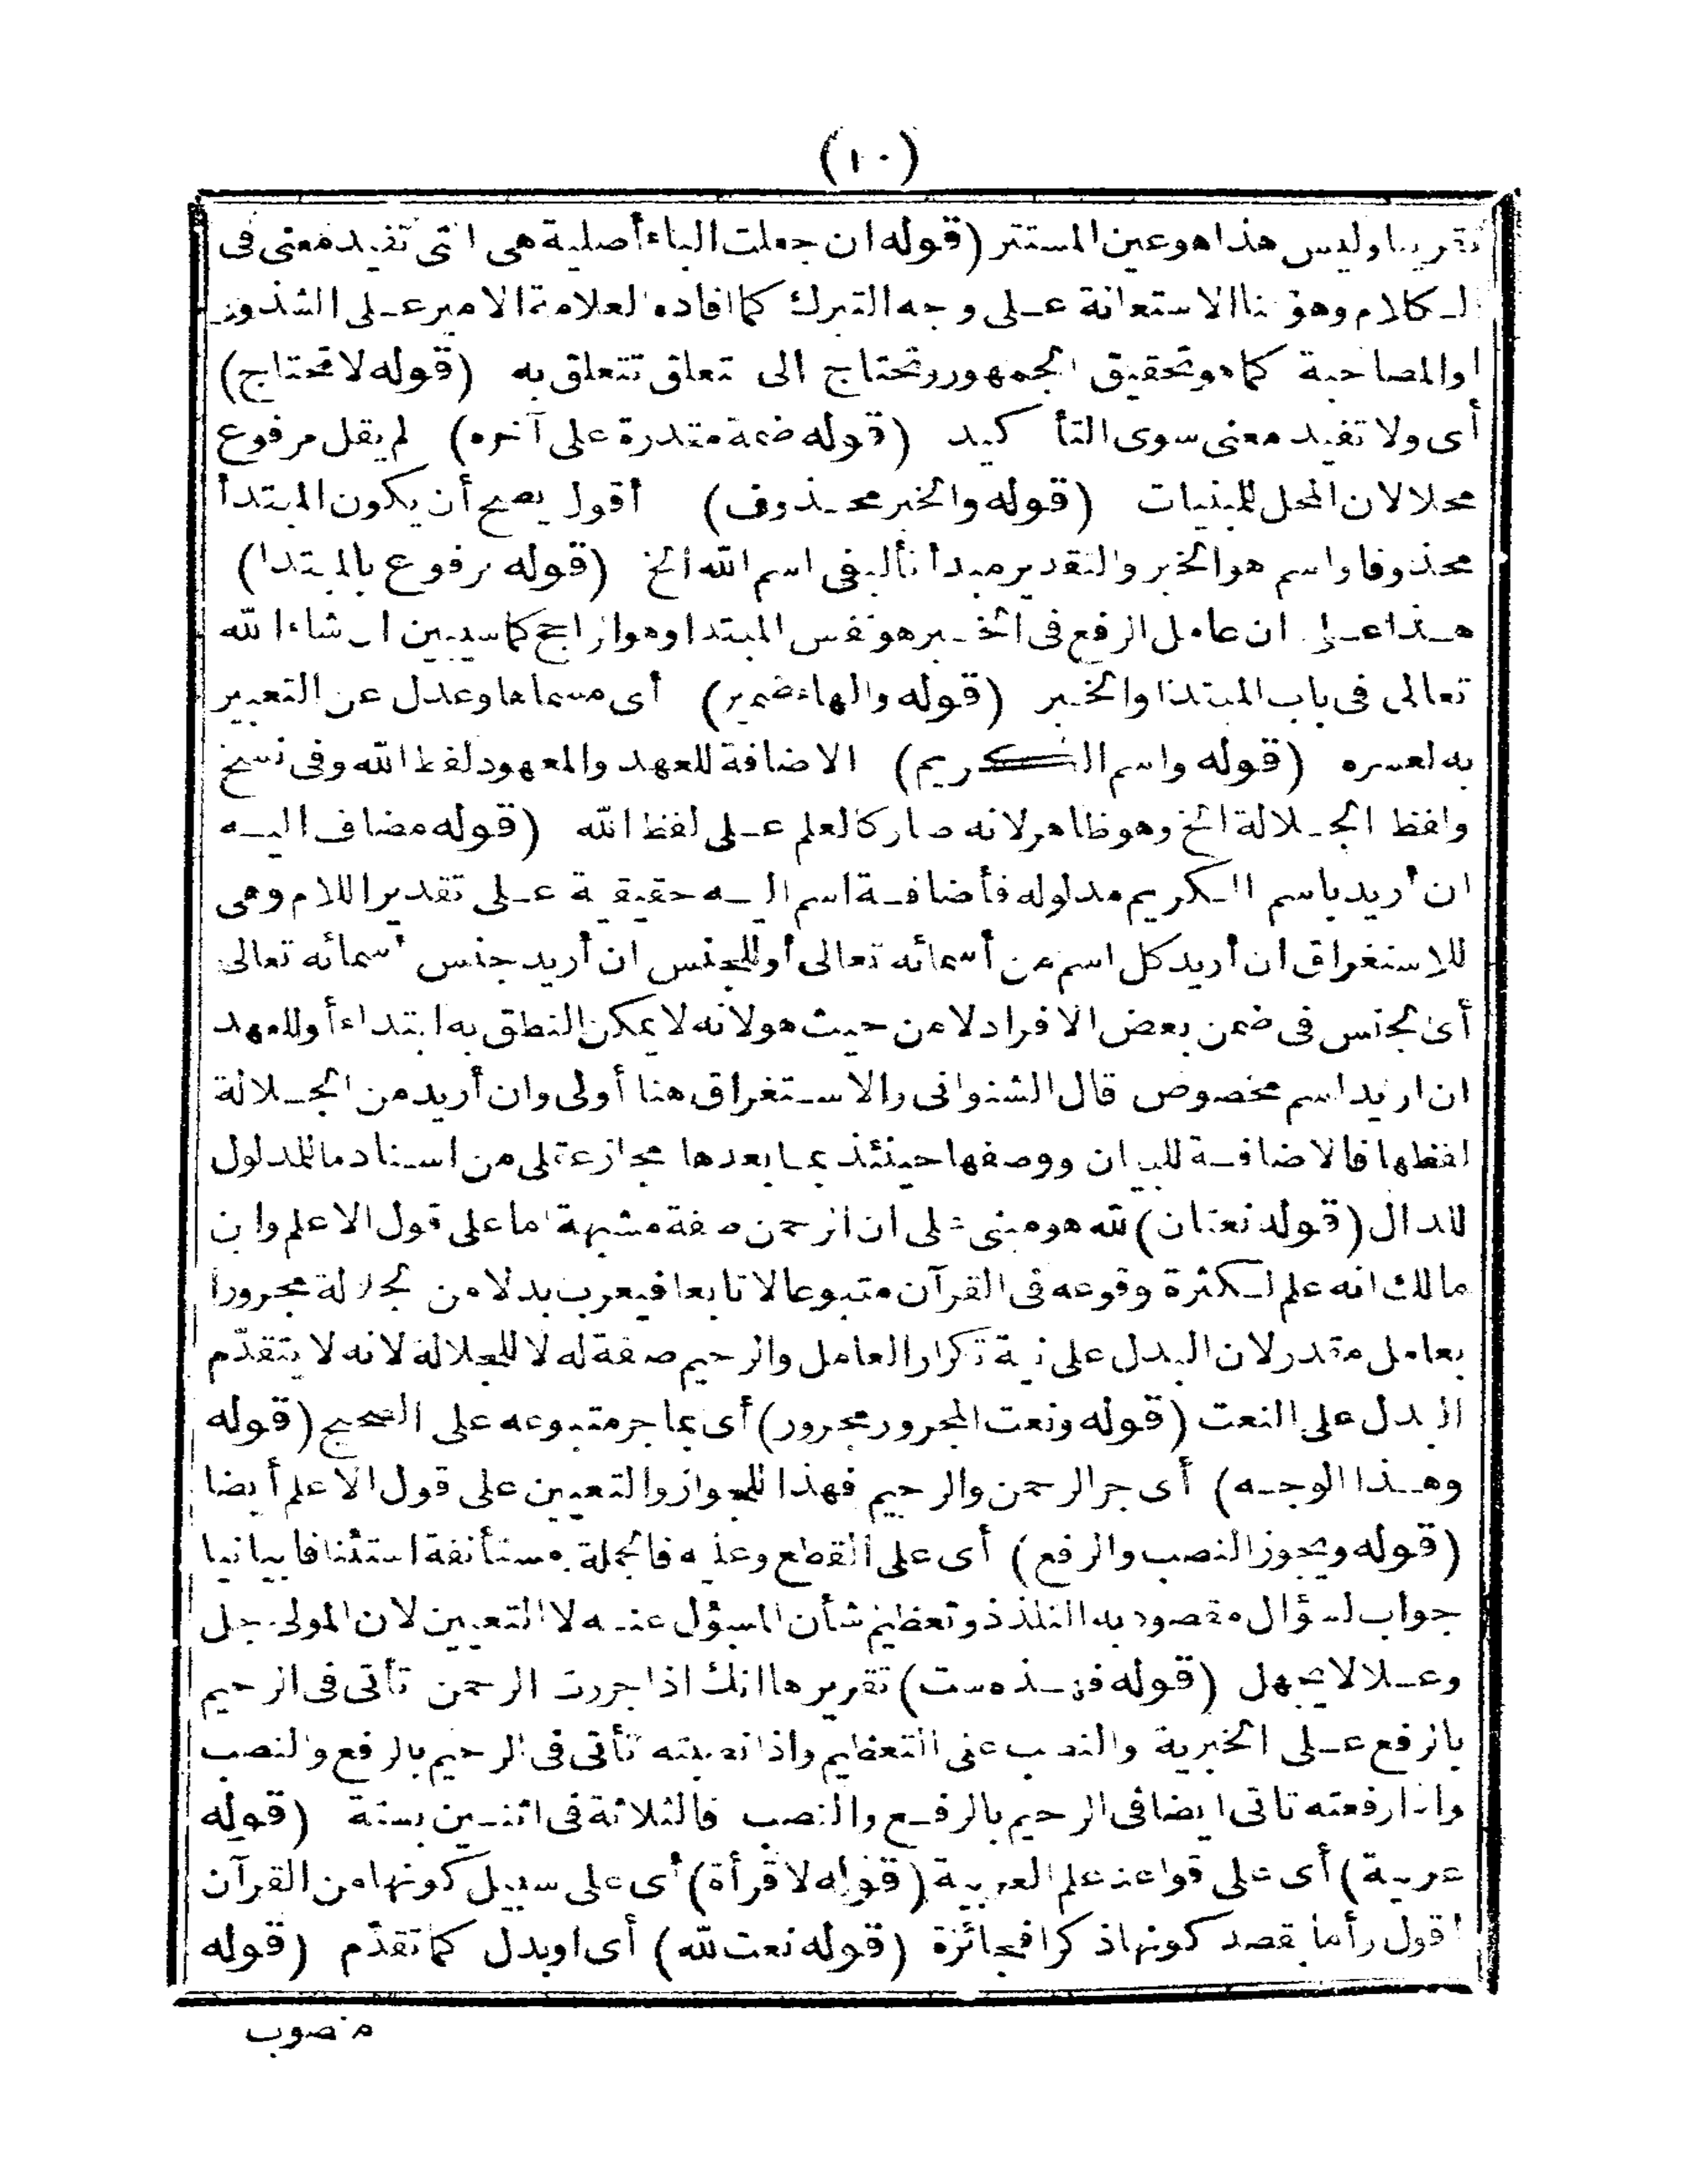 (١٠)
تقريبا وليس هذا هو عين المستتر (قوله ان جعلت الباء أصلية هى التى تفيد معنى فى
الكلام وهو هنا الاستعانة على وجه التبرك كما افاده العلامة الامير على الشذور
أو المصاحبة كما هو تحقيق الجمهور وتحتاج الى متعلق تتعلق به (قوله لا تحتاج)
أى ولا تفيد معنى سوى التأكيد (قوله ضمة مقدرة على آخره) لم يقل مرفوع
محلا لان المحل للمبنيات (قوله والخبر محذوف) أقول يصح أن يكون المبتدأ
محذوفا واسم هو الخبر والتقدير مبدأ تأليفى اسم الله الخ (قوله مرفوع بالمبتدا)
هذا على ان عامل الرفع فى الخبر هو نفس المبتدا وهو الراجح كما سيبين ان شاء الله
تعالى فى باب المبتدا والخبر (قوله والهاء ضمير) أى مسماها وعدل عن التعبير
به لعسره (قوله واسم الكريم) الاضافة للعهد والمعهود لفظ الله وفى نسخ
ولفظ الجلالة الخ وهو ظاهر لانه صار كالعلم على لفظ الله (قوله مضاف اليه
ان أريد باسم الكريم مدلوله فأضافة اسم اليه حقيقية على تقدير اللام وهى
للاستغراق ان أريد كل اسم من أسمائه تعالى أو للجنس ان أريد جنس أسمائه تعالى
أى الجنس فى ضمن بعض الافراد لا من حيث هو لانه لا يمكن النطق به ابتداء أو للعهد
ان اريد اسم مخصوص قال الشنوانى والاستغراق هنا أولى وان أريد من الجلالة
لفظها فالاضافة للبيان ووصفها حينئذ بما بعدها مجاز عقلى من اسناد ما للمدلول
للدال (قوله نعتان) لله هو مبنى على ان الرحمن صفة مشبهة اما على قول الاعلم وابن
مالك انه علم لكثرة وقوعه فى القرآن متبوعا لا تابعا فيعرب بدلا من الجلالة مجرورا
بعامل مقدر لان البدل على نية تكرار العامل والرحيم صفة له لا للجلالة لانه لا يتقدّم
البدل على النعت (قوله ونعت المجرور مجرور) أى بما جر متبوعه على الصحيح (قوله
وهذا الوجه) أى جر الرحمن والرحيم فهذا للجواز والتعيين على قول الاعلم أيضا
(قوله ويجوز النصب والرفع) أى على القطع وعليه فالجملة مستأنفة استئنافا بيانيا
جواب لسؤال مقصود به التلذذ وتعظيم شأن المسؤل عنه لا التعيين لان المولى جل
وعلا لا يجهل (قوله فهذه ست) تقريرها انك اذا جررت الرحمن تأتى فى الرحيم
بالرفع على الخبرية والنصب على التعظيم واذا نصبته تأتى فى الرحيم بالرفع والنصب
واذا رفعته تاتى ايضا فى الرحيم بالرفع والنصب فالثلاثة فى اثنين بستة (قوله
عربية) أى على قواعد علم العربية (قوله لا قرأة) أى على سبيل كونها من القرآن
اقول وأما بقصد كونها ذكرا فجائزة (قوله نعت لله) أى او بدل كما تقدّم (قوله
منصوب